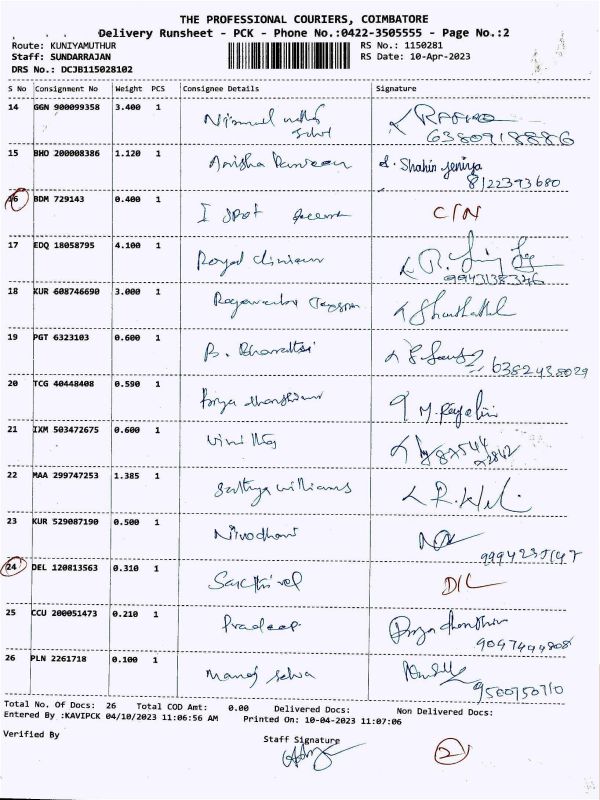 THE PROFESSIONAL COURIERS, COIMBATORE
Delivery Runsheet - PCK - Phone No.:0422-3505555 - Page No.:2
Route: KUNIYAMUTHUR RS No.: 1150281
Staff: SUNDARRAJAN RS Date: 10-Apr-2023
DRS No.: DCJB115028102
S No Consignment No Weight PCS Consignee Details Signature
14 GGN 900099358 3.400 1
6380918886
15 BHO 200008386 1.120 1 Anisha Shahin Jeniya
8122393680
16 BDM 729143 0.400 1 I spot C/N
17 EDQ 18058795 4.100 1 Royal R.
9943138376
18 KUR 608746690 3.000 1
19 PGT 6323103 0.600 1 B. Bharathi 6382438029
20 TCG 40448408 0.590 1 Priya M.
21 IXM 503472675 0.600 1
22 MAA 299747253 1.385 1 Sathya williams R.
23 KUR 529087190 0.500 1 Nivodhani
24 DEL 120813563 0.310 1 Sakthivel D/L
25 CCU 200051473 0.210 1 Pradeep
26 PLN 2261718 0.100 1 Manoj Selva
9500750710
Total No. Of Docs: 26 Total COD Amt: 0.00 Delivered Docs: Non Delivered Docs:
Entered By :KAVIPCK 04/10/2023 11:06:56 AM Printed On: 10-04-2023 11:07:06
Verified By Staff Signature
2